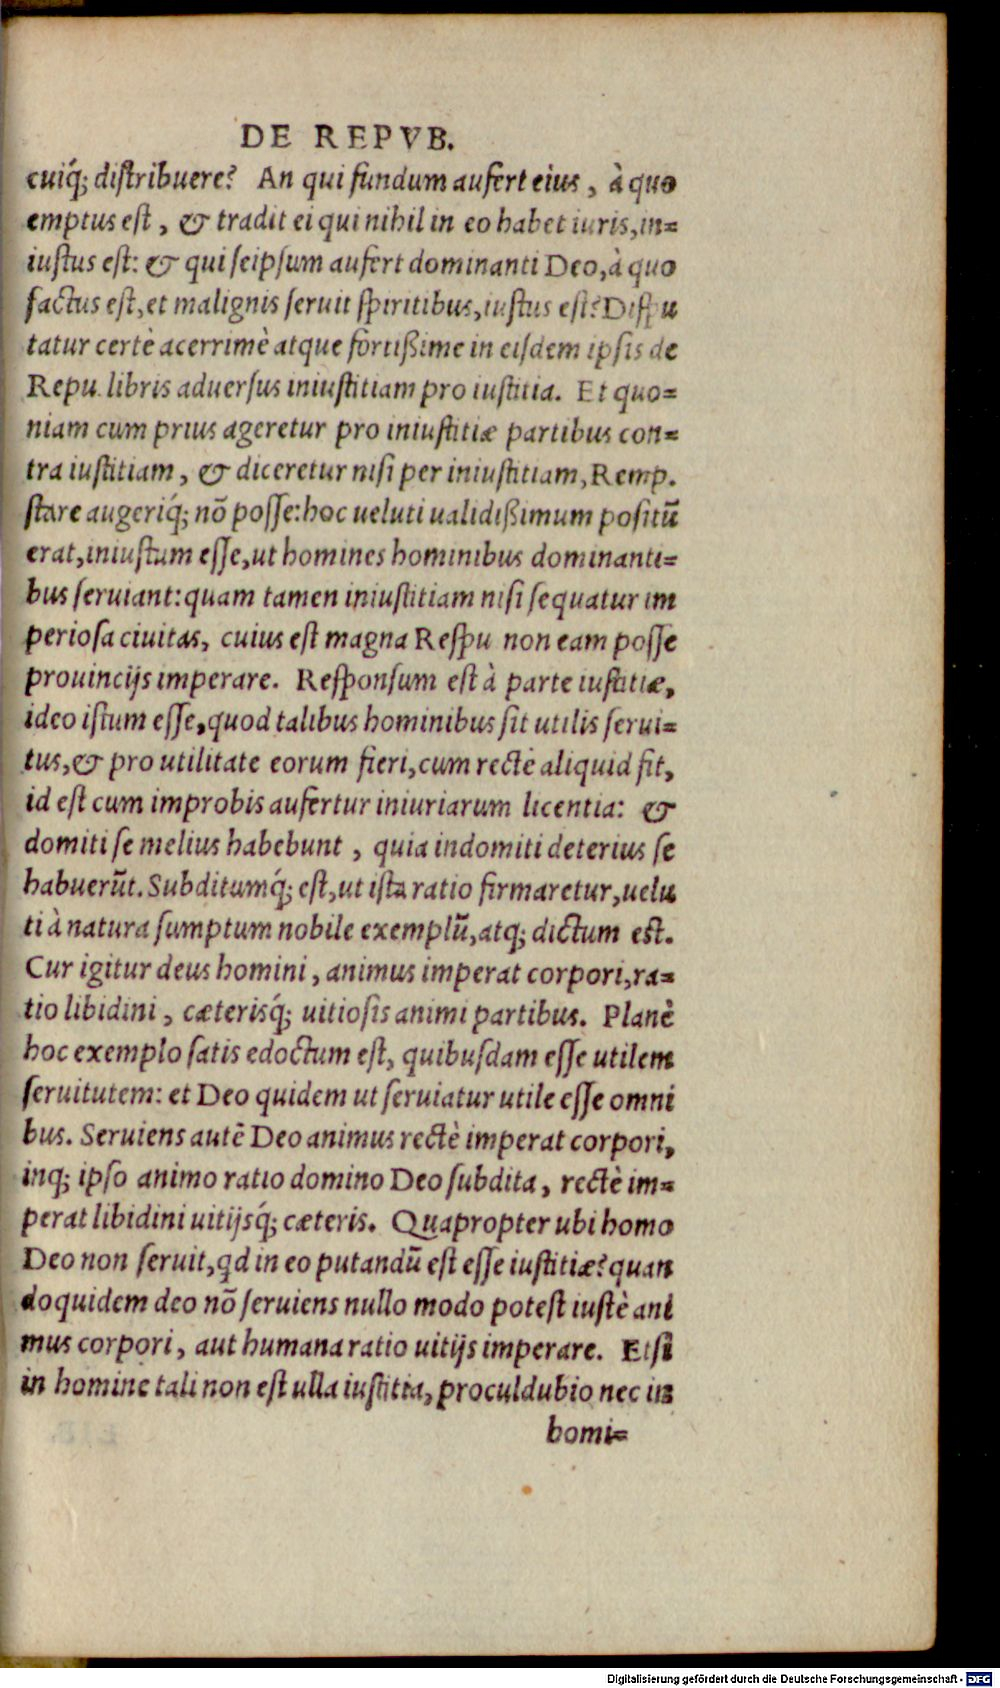 DE REPVB.
cuiq́; distribuere? An qui fundum aufert eius, à quo
emptus est, & tradit ei qui nihil in eo habet iuris, in=
iustus est: & qui seipsum aufert dominanti Deo, à quo
factus est, et malignis seruit spiritibus, iustus est? Dispu
tatur certè acerrimè atque fortißime in eisdem ipsis de
Repu. libris aduersus iniustitiam pro iustitia. Et quo=
niam cum prius ageretur pro iniustitiæ partibus con=
tra iustitiam, & diceretur nisi per iniustitiam, Remp.
stare augeriq́; nō posse: hoc ueluti ualidißimum positū
erat, iniustum esse, ut homines hominibus dominanti=
bus seruiant: quam tamen iniustitiam nisi sequatur im
periosa ciuitas, cuius est magna Respu non eam posse
prouincijs imperare. Responsum est à parte iustitiæ,
ideo istum esse, quod talibus hominibus sit utilis serui=
tus, & pro utilitate eorum fieri, cum rectè aliquid fit,
id est cum improbis aufertur iniuriarum licentia: &
domiti se melius habebunt, quia indomiti deterius se
habuerūt. Subditumq́; est, ut ista ratio firmaretur, uelu
ti à natura sumptum nobile exemplū, atq; dictum est.
Cur igitur deus homini, animus imperat corpori, ra=
tio libidini, cæterisq́; uitiosis animi partibus. Planè
hoc exemplo satis edoctum est, quibusdam esse utilem
seruitutem: et Deo quidem ut seruiatur utile esse omni
bus. Seruiens autē Deo animus rectè imperat corpori,
inq; ipso animo ratio domino Deo subdita, rectè im=
perat libidini uitijsq́; cæteris. Quapropter ubi homo
Deo non seruit, qd in eo putandū est esse iustitiæ? quan
doquidem deo nō seruiens nullo modo potest iustè ani
mus corpori, aut humana ratio uitijs imperare. Et si
in homine tali non est ulla iustitia, proculdubio nec in
homi=
Digitalisierung gefördert durch die Deutsche Forschungsgemeinschaft - DFG